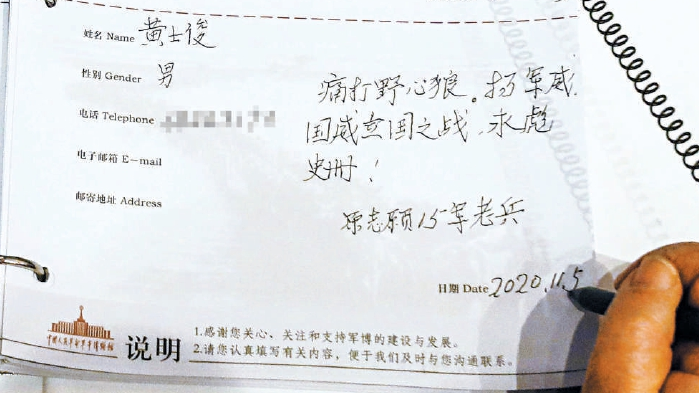 姓名 Name 黄士俊
性别 Gender 男
电话 Telephone
电子邮箱 E-mail
邮寄地址 Address
痛打野心狼。扬军威
国威立国之战、永彪
史册！
原志愿15军老兵
日期 Date 2020.11.5
中国人民革命军事博物馆
说明
1.感谢您关心、关注和支持军博的建设与发展。
2.请您认真填写有关内容，便于我们及时与您沟通联系。